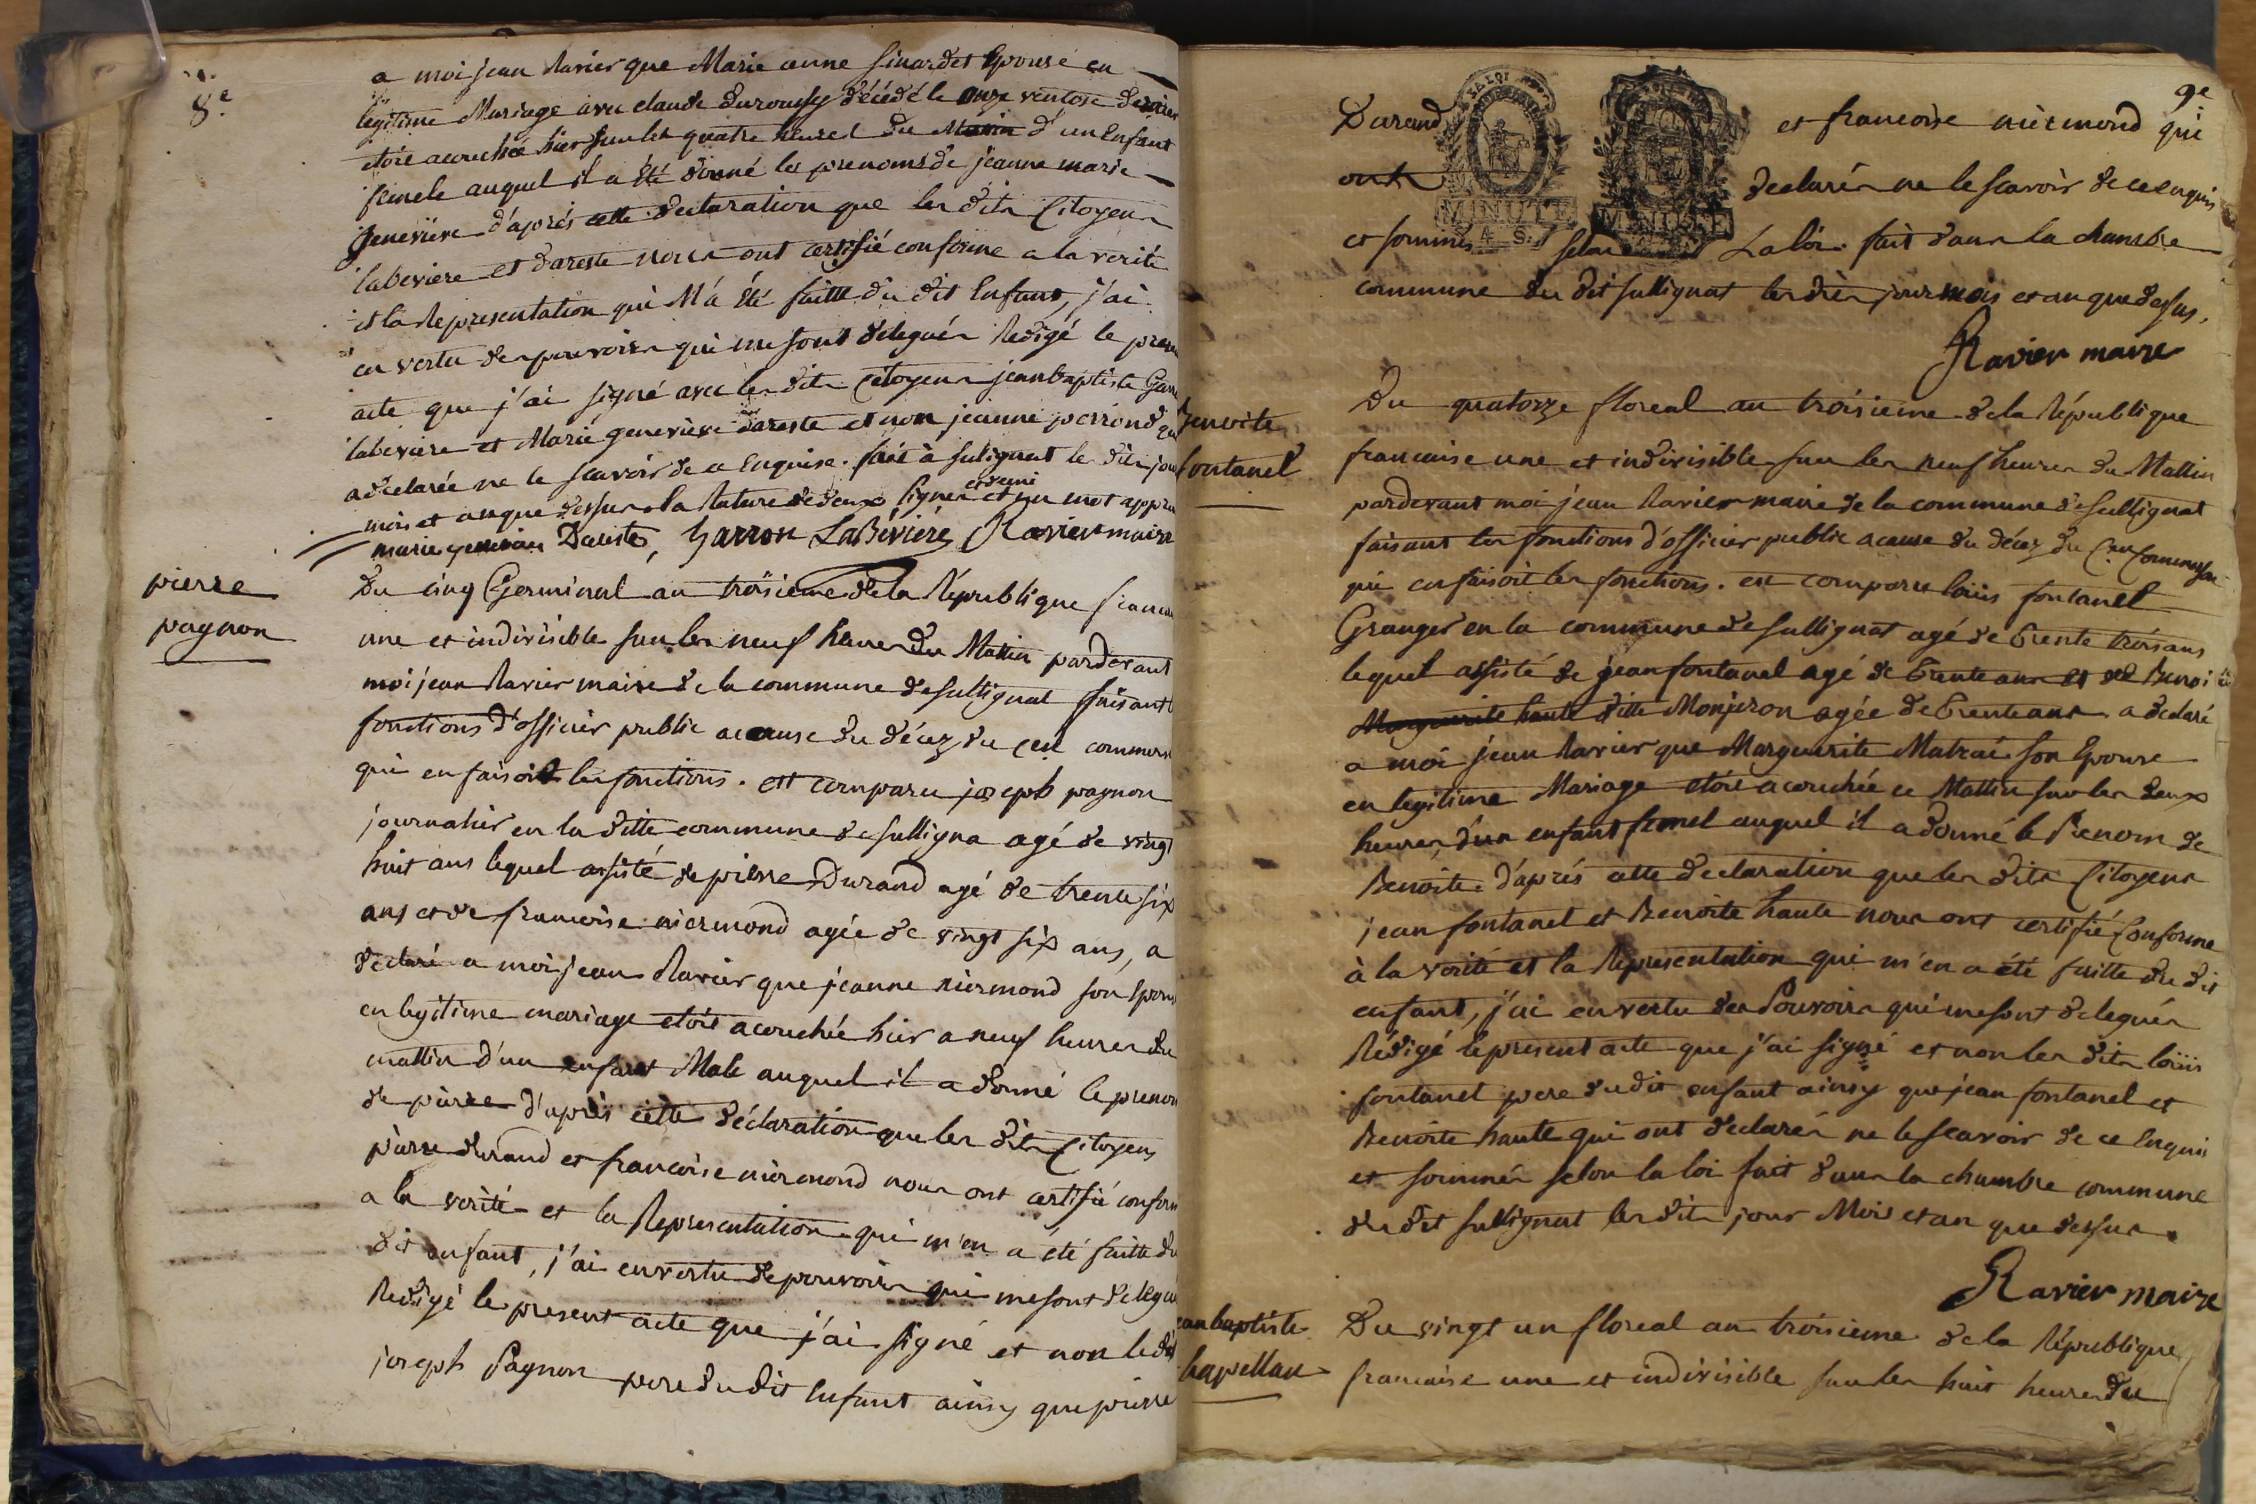 8e
a moi jean Ravier que Marie anne Sinardet Epouse en
legitime Mariage avec claude duroussy décédé le onze ventose dernier
etoit acouchée hier sur les quatre heures du Matin d'un Enfant
femele auquel il a été donné les prenoms de jeanne marie
Genevieve d'aprés cette declaration que les dits Citoyens
labeviere et dareste nous ont certifié conforme a la verité
et la Representation qui M'a été faitte du dit Enfant, j'ai
en vertu des pouvoirs qui me sont delegués Redigé le presen
acte que j'ai signé avec les dits Citoyens jeanbaptiste Garr
labeviere et Marie genevieve dareste et non jeanne perrond qui
a declarée ne le scavoir de ce Enquise. fait à sulignat le dits jour
mois et an que dessus la Rature de deux lignes et demi et un mot appro
marie genevieve Dareste, Garron LaBéviére Ravier maire
pierre
pagnon
Du cinq Germinal an troisieme de la République francai
une et indivisible sur les neuf heures du Mattin pardevant
moi jean Ravier maire de la commune de sullignat faisant
fonctions d'officier public acause du décez du cen commerson
qui en faisoit les fonctions. est comparu joseph pagnon
journalier en la ditte commune de sulligna agé de vingt
huit ans lequel assisté de pierre Durand agé de trente six
ans et de francoise niermond agée de vingt six ans, a
declaré a moi jean Ravier que jeanne niermond son Epous
en legitime mariage etoit acouchée hier a neuf heures du
mattin d'un enfant Male auquel il a donné le prenom
de pierre d'aprés cette déclaration que les dits Citoyens
pierre durand et francoise niermond nous ont certifié conform
a la verité et la Representation qui m'en a été faitte du
dit enfant, j'ai en vertu de pouvoirs qui me sont delegué
Redigé le present acte que j'ai signé et non le dit
joseph Pagnon pere du dit Enfant ainsy que pierre
9e
Durand et francoise niermond qui
ont declarés ne le scavoir de ce enquis
et sommés selon La loi. fait dans la chambre
commune du dit sullignat les dits jour mois et an que dessus.
MINUTE
MINUTE
Ravier maire
Benoite
fontanel
Du quatorze floreal an troisieme de la République
francaise une et indivisible sur les neuf heures du Mattin
pardevant moi jean Ravier maire de la commune de sullignat
faisant les fonctions d'officier public acause du décez du Cen Commerson
qui en faisoit les fonctions. est comparu loüis fontanel
Granger en la commune de sullignat agé de trente trois ans
lequel assisté de jean fontanel agé de trente ans et de Benoite
Marguerite haute ditte Monjeron agée de trente ans a declaré
a moi jean Ravier que Marguerite Matrai son Epouse
en legitime Mariage etoit acouchée ce Mattin sur les deux
heures d'un enfant femel auquel il a donné le Prenom de
Benoite. d'aprés cette declaration que les dits Citoyens
jean fontanel et Benoite haute nous ont certifié Conforme
à la verité et la Representation qui m'en a été faitte du dit
enfant, j'ai en vertu des Pouvoirs qui me sont delegués
Rédigé le present acte que j'ai signé et non les dits loüis
fontanel pere dudit enfant ainsy que jean fontanel et
Benoite haute qui ont declarés ne le scavoir de ce Enquis
et sommés selon la loi fait dans la chambre commune
du dit sullignat les dits jour Mois et an que dessus.
Ravier maire
jean baptiste
chapellan
Du vingt un floreal an troisieme de la République
francaise une et indivisible sur les huit heures du